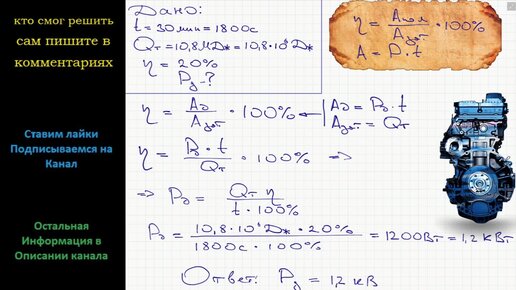 кто смог решить
сам пишите в
комментариях
Ставим лайки
Подписываемся на
Канал
Остальная
Информация в
Описании канала
Дано:
t = 30 мин = 1800 с
Qт = 10,8 МДж = 10,8·10⁶ Дж
η = 20%
Pд - ?
η = Aпол / Aзат · 100%
A = P · t
η = Aд / Aзат · 100% ← | Aд = Pд · t
Aзат = Qт
η = Pд · t / Qт · 100% ⇒
⇒ Pд = Qт η / t · 100%
Pд = 10,8·10⁶ Дж · 20% / 1800 с · 100% = 1200 Вт = 1,2 кВт
Ответ: Pд = 1,2 кВ